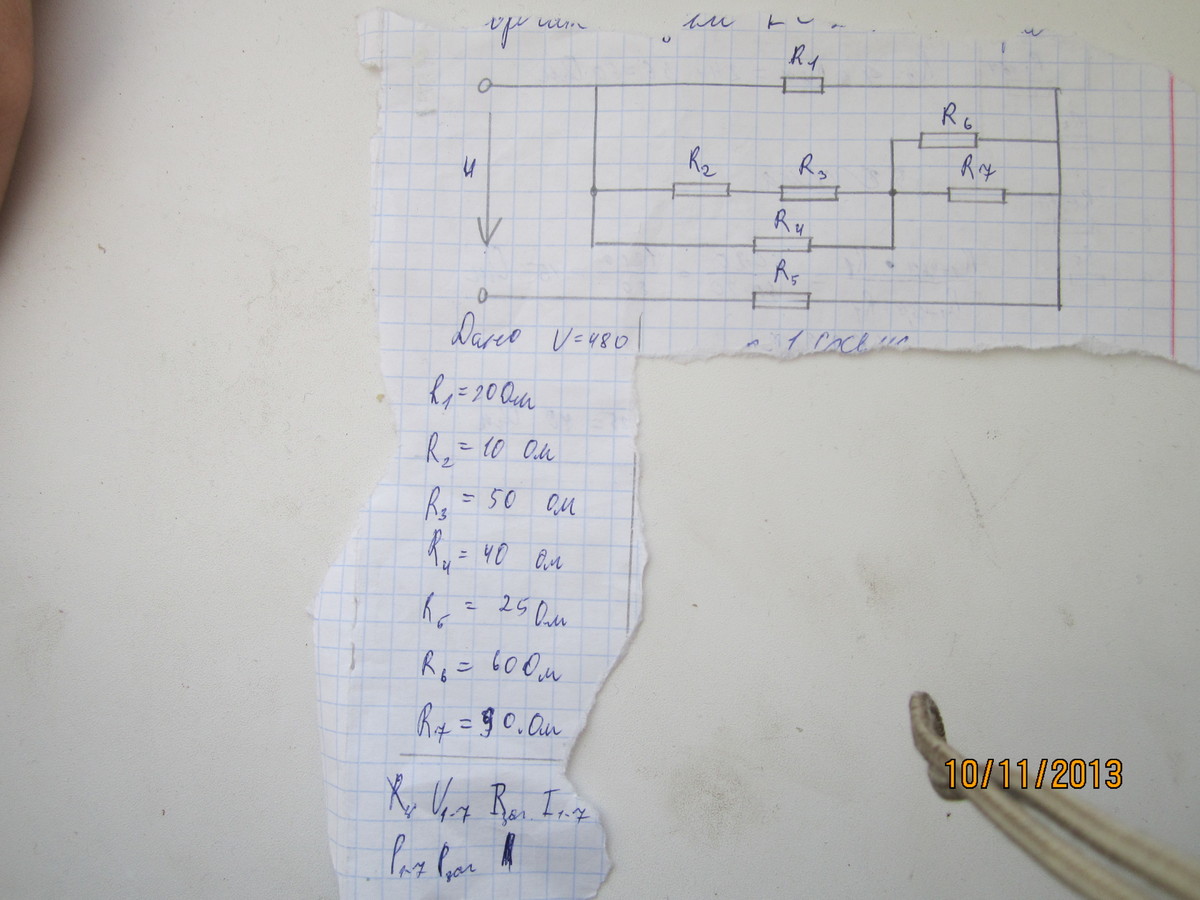 R1
R6
R2 R3 R7
U
R4
R5
Дано V=480
R1=20Ом
R2=10 Ом
R3=50 Ом
R4=40 Ом
R5=25 Ом
R6=60 Ом
R7=90.Ом
V1-7 Rзаг. I1-7
P1-7 Pзаг
10/11/2013